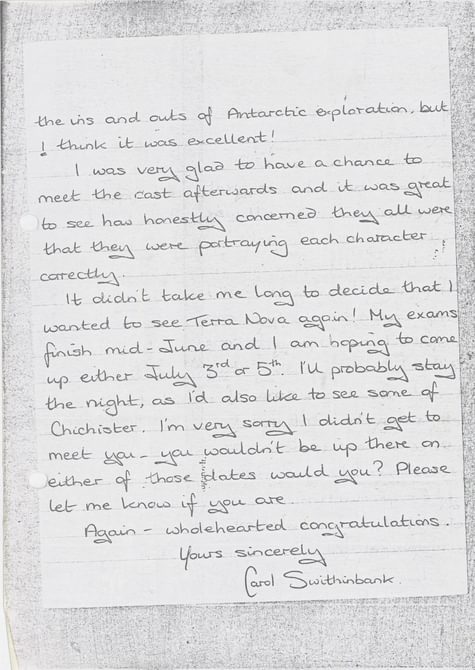 the ins and outs of Antarctic exploration, but
I think it was excellent!
I was very glad to have a chance to
meet the cast afterwards and it was great
to see how honestly concerned they all were
that they were portraying each character
correctly.
It didn't take me long to decide that I
wanted to see Terra Nova again! My exams
finish mid-June and I am hoping to come
up either July 3rd or 5th. I'll probably stay
the night, as I'd also like to see some of
Chichister. I'm very sorry I didn't get to
meet you - you wouldn't be up there on
either of those dates would you? Please
let me know if you are
Again - wholehearted congratulations.
Yours sincerely
Carol Swithinbank.